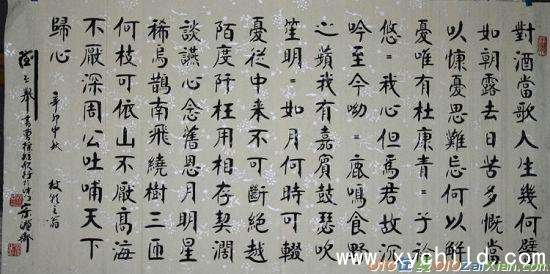 對酒當歌人生幾何譬
如朝露去日苦多慨當
以慷憂思難忘何以解
憂唯有杜康青=子衿
悠=我心但爲君故沉
吟至今呦=鹿鳴食野
之蘋我有嘉賓鼓瑟吹
笙明=如月何時可輟
憂從中來不可斷絕越
陌度阡枉用相存契闊
談讌心念舊恩月明星
稀烏鵲南飛繞樹三匝
何枝可依山不厭高海
不厭深周公吐哺天下
歸心
辛卯中秋
www.xychild.com
ZaiXian.com